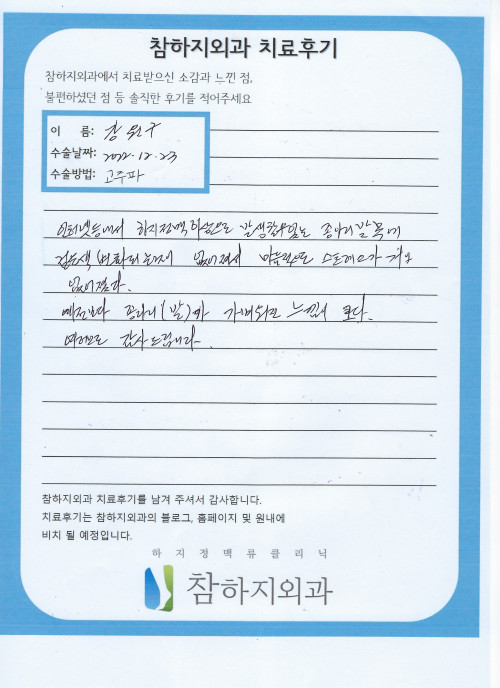 참하지외과 치료후기
참하지외과에서 치료받으신 소감과 느낀 점,
불편하셨던 점 등 솔직한 후기를 적어주세요
이 름:
수술날짜: 2022.12.23
수술방법: 고주파
인터넷등에서 하지정맥 발생할수있는 종아리 발목에
검은색 변화되는것이 없어져서 스트레스가 거의
없어졌다.
예전보다 다리(발)가 가벼워진 느낌이 든다.
여러모로 감사드립니다.
참하지외과 치료후기를 남겨 주셔서 감사합니다.
치료후기는 참하지외과의 블로그, 홈페이지 및 원내에
비치 될 예정입니다.
하지정맥류클리닉
참하지외과